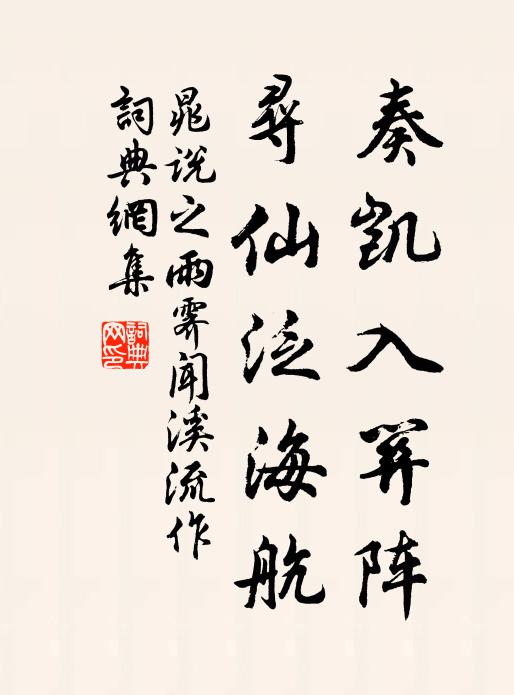 奏凯入関阵
尋仙泛海航
晁説之雨霁聞溪流作
詞典網集
詞典网印